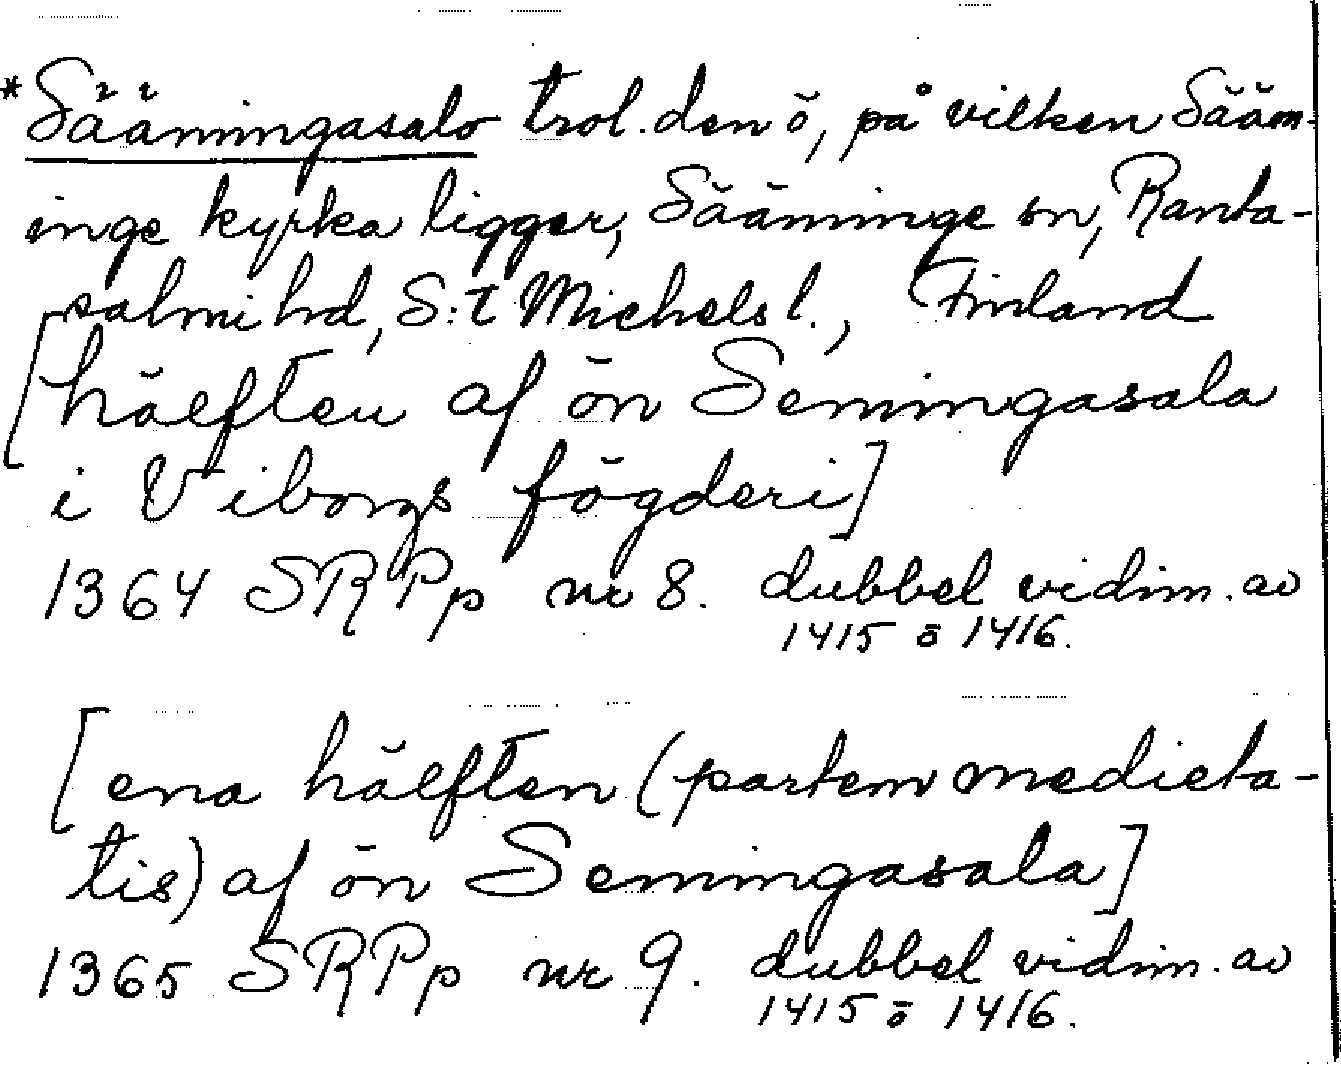 *Sääningasalo trol. den ö, på vilken Sääm-
inge kyrka ligger, Sääminge sn, Ranta-
salmi hd, S:t Michels l., Finland
[hälften af ön Semingasala
i Viborgs fögderi]
1364 SRPp nr 8. dubbel vidim. av
1415 o 1416.
[ena hälften (partem medieta-
tis) af ön Semingasala]
1365 SRPp nr 9. dubbel vidim. av
1415 o 1416.